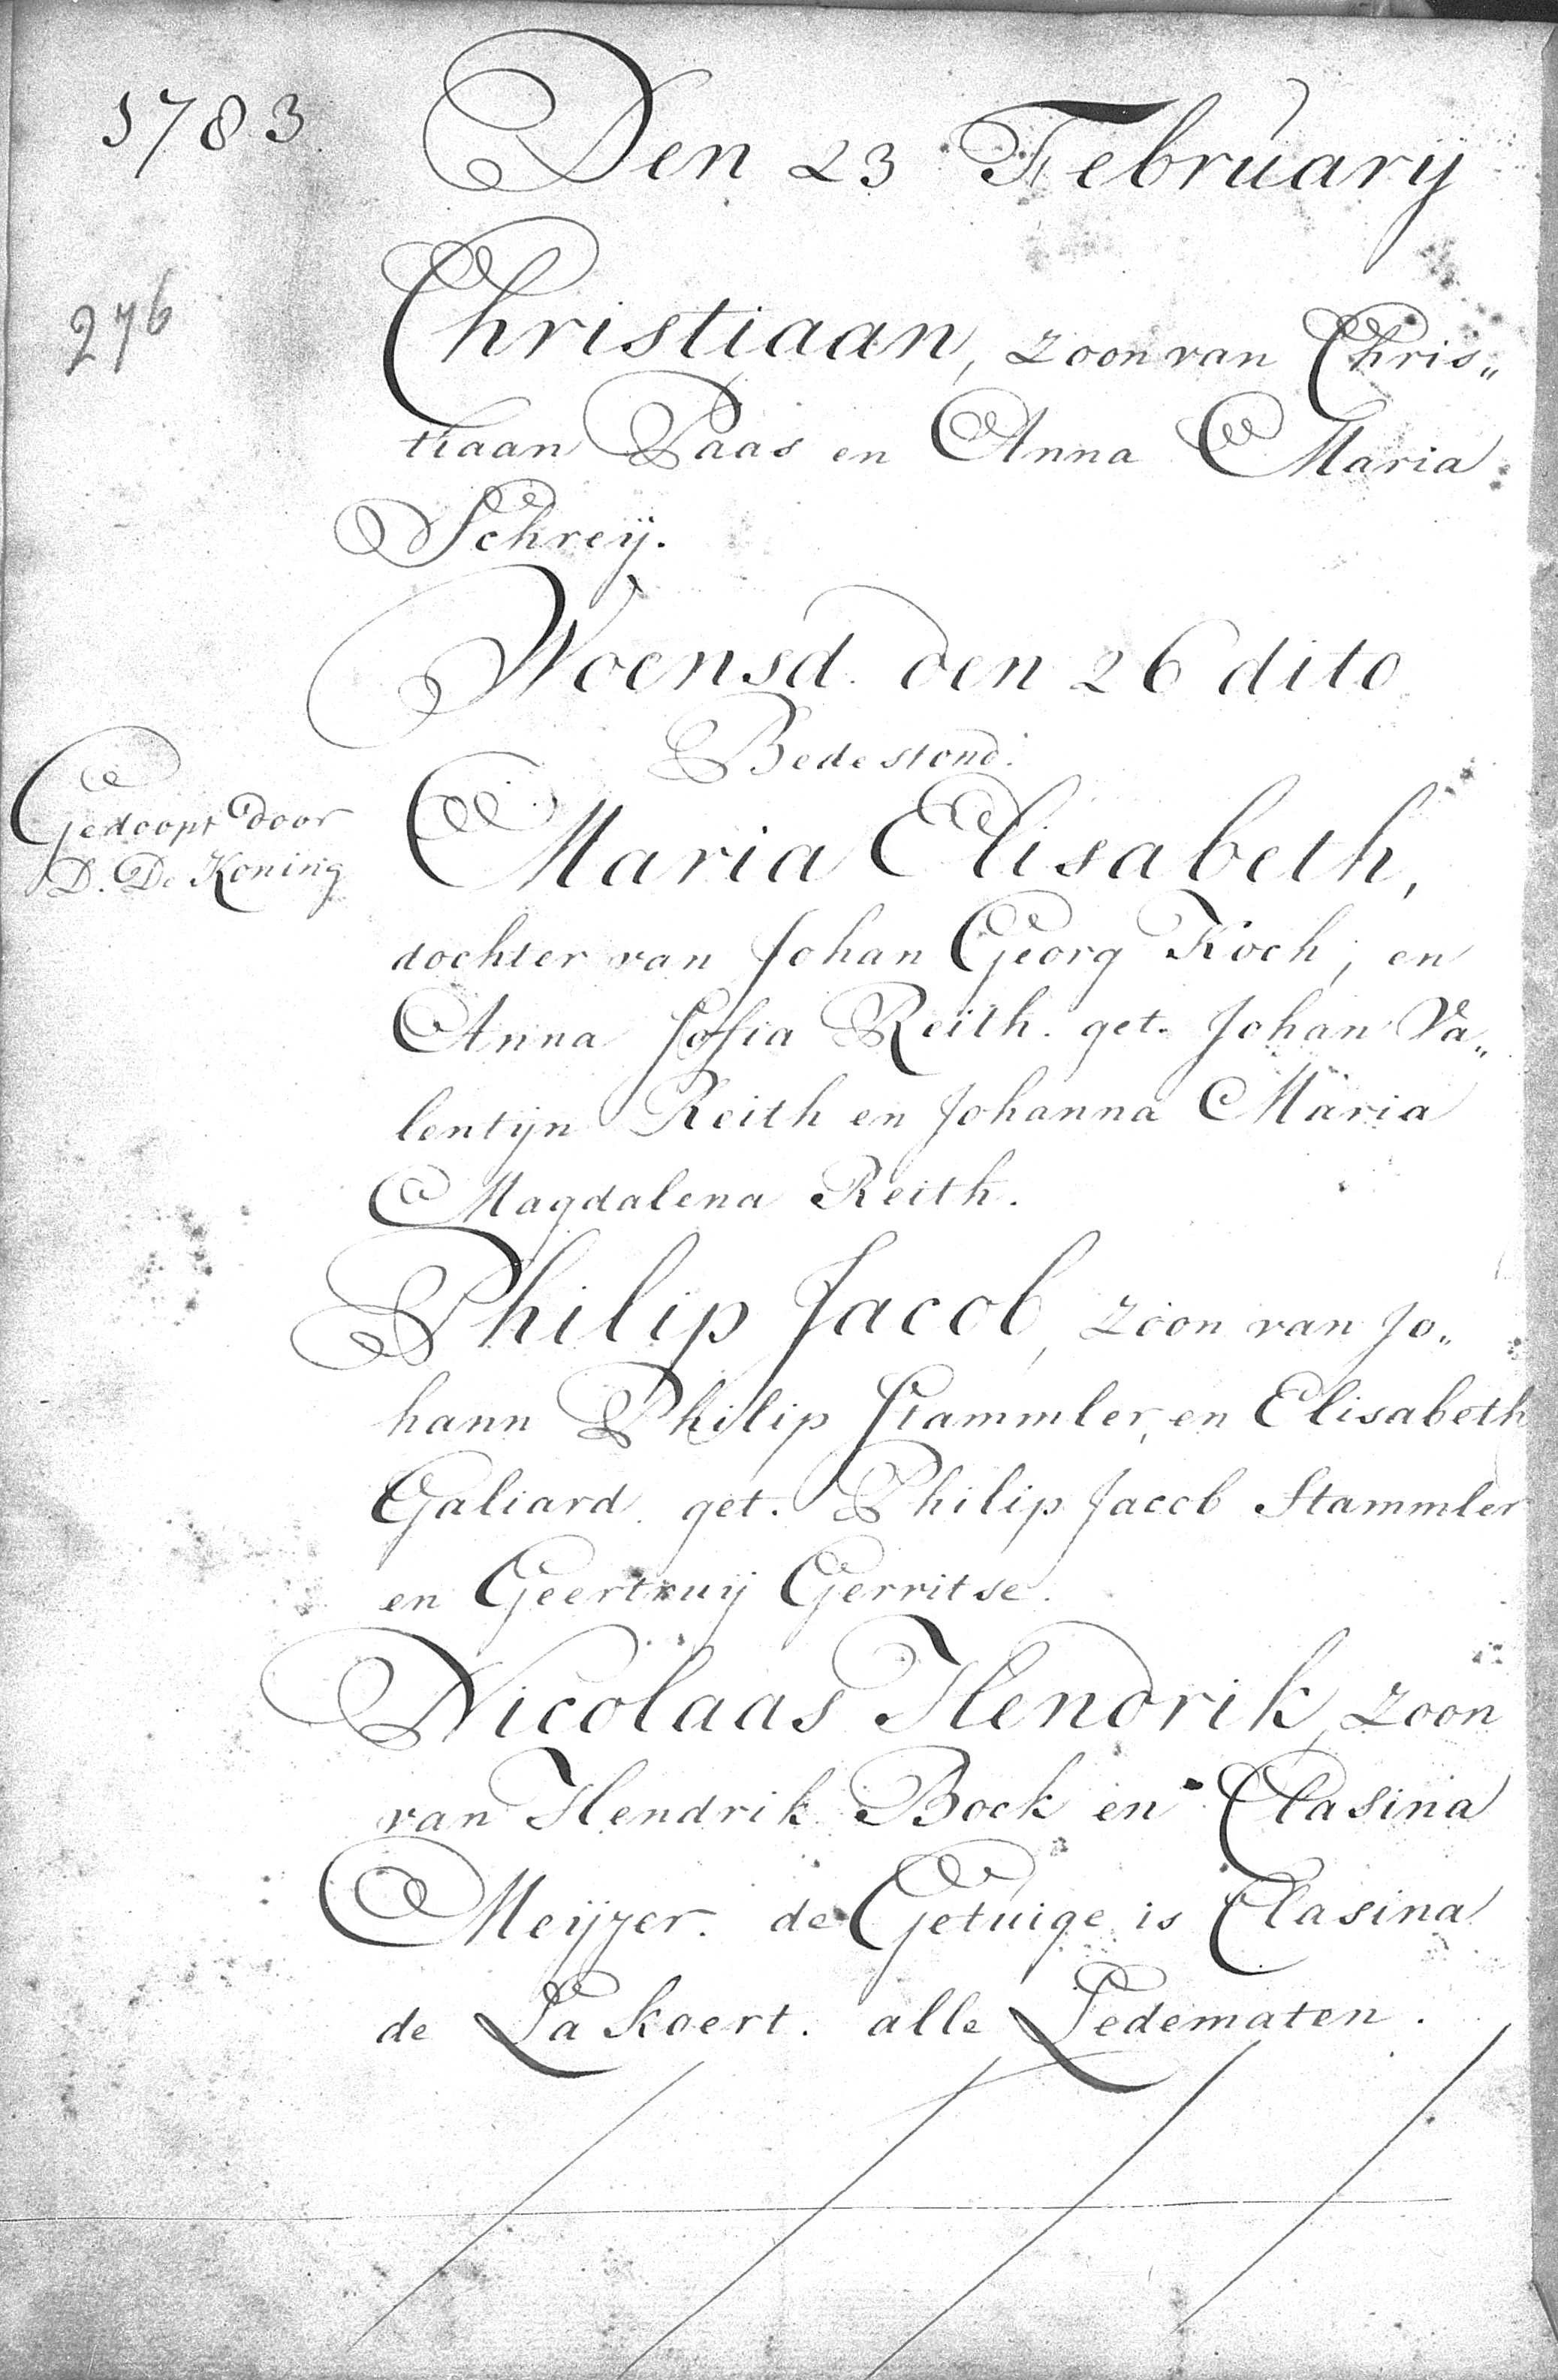 1783
Den 23 February
276
Christiaan, zoon van Chris„
tiaan Paas en Anna Maria
Schreÿ.
Woensd. den 26 dito
Bedestond.
Gedoopt door
D. De Koning
Maria Elisabeth,
dochter van Johan Georg Koch, en
Anna Sofia Reith. get. Johan Va„
lentijn Reith en Johanna Maria
Magdalena Reith.
Philip Jacob, zoon van Jo„
hann Philip Stammler, en Elisabeth
Galiard. get. Philip Jacob Stammler
en Geertruij Gerritse.
Nicolaas Hendrik, zoon
van Hendrik Bock en Clasina
Meijzer. de Getuige is Clasina
de La Koert. alle Ledematen.